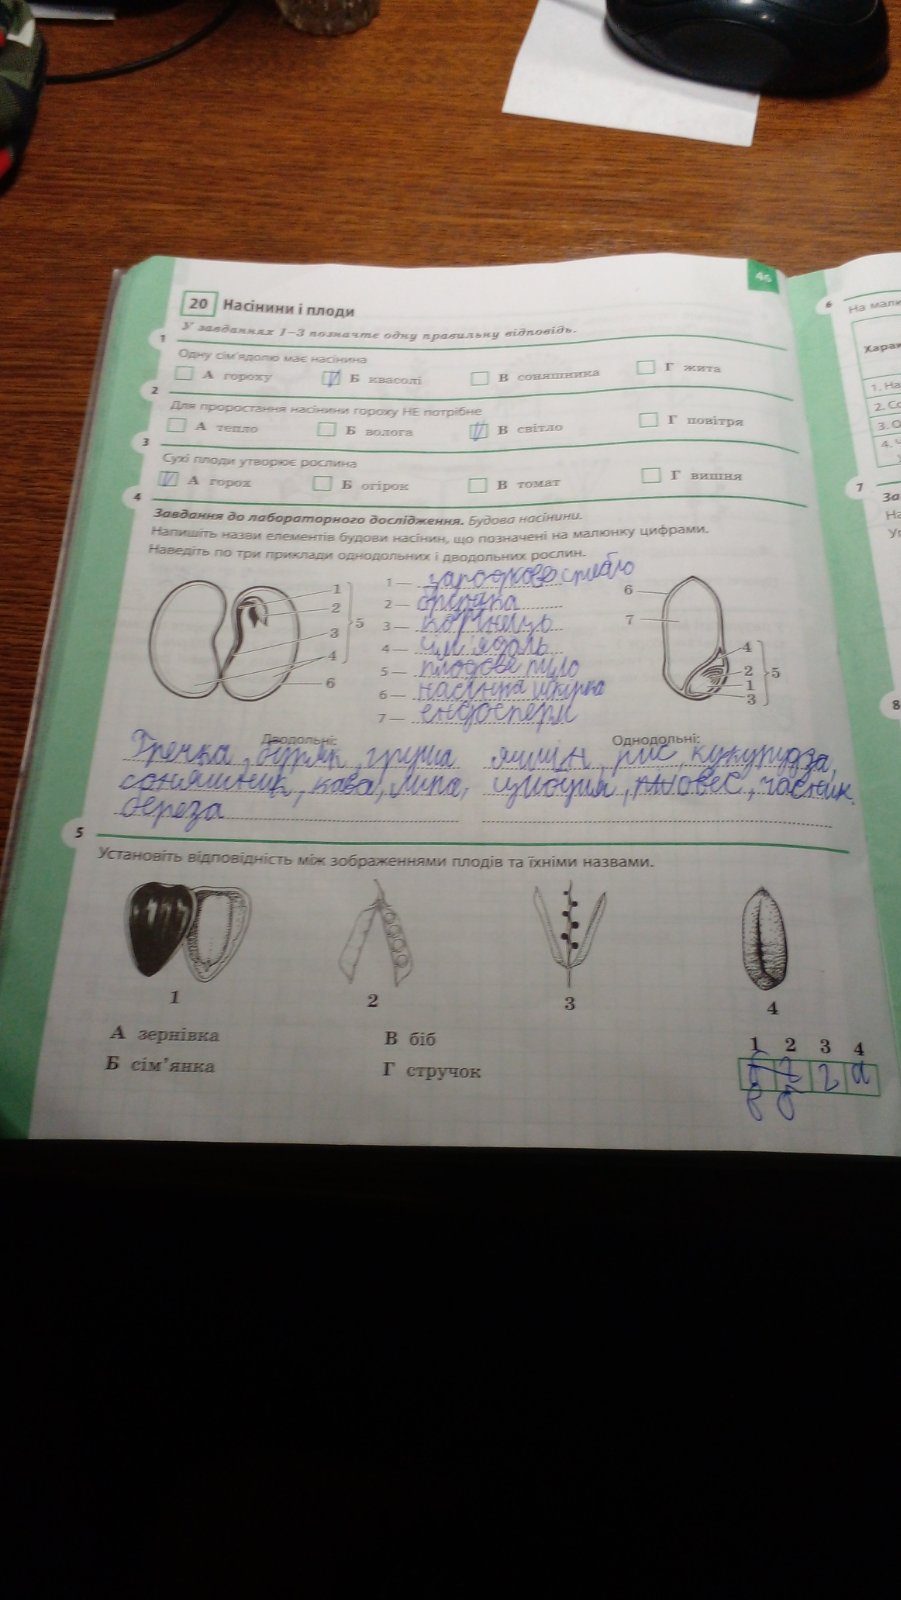 46
20 Насінини і плоди
У завданнях 1–3 позначте одну правильну відповідь.
1
Одну сім'ядолю має насінина
А гороху Б квасолі В соняшника Г жита
2
Для проростання насінини гороху НЕ потрібне
А тепло Б волога В світло Г повітря
3
Сухі плоди утворює рослина
А горох Б огірок В томат Г вишня
4
Завдання до лабораторного дослідження. Будова насінини.
Напишіть назви елементів будови насінин, що позначені на малюнку цифрами.
Наведіть по три приклади однодольних і дводольних рослин.
1 — зародкове стебло
2 — брунька
3 — корінець
4 — сім'ядоль
5 — плодове тіло
6 — насінна шкірка
7 — ендосперм
1
2
3
4
5
6
6
7
4
2
1
3
5
Дводольні:
Гречка, буряк, груша
соняшник, кава, липа,
береза
Однодольні:
ячмін, рис, кукурудза,
цибуля, овес, часник.
5
Установіть відповідність між зображеннями плодів та їхніми назвами.
1 2 3 4
А зернівка В біб
Б сім'янка Г стручок
1 2 3 4
г а
6
На мали
Харак
1. На
2. Сс
3. О
4. Ч
7
За
На
Ув
8